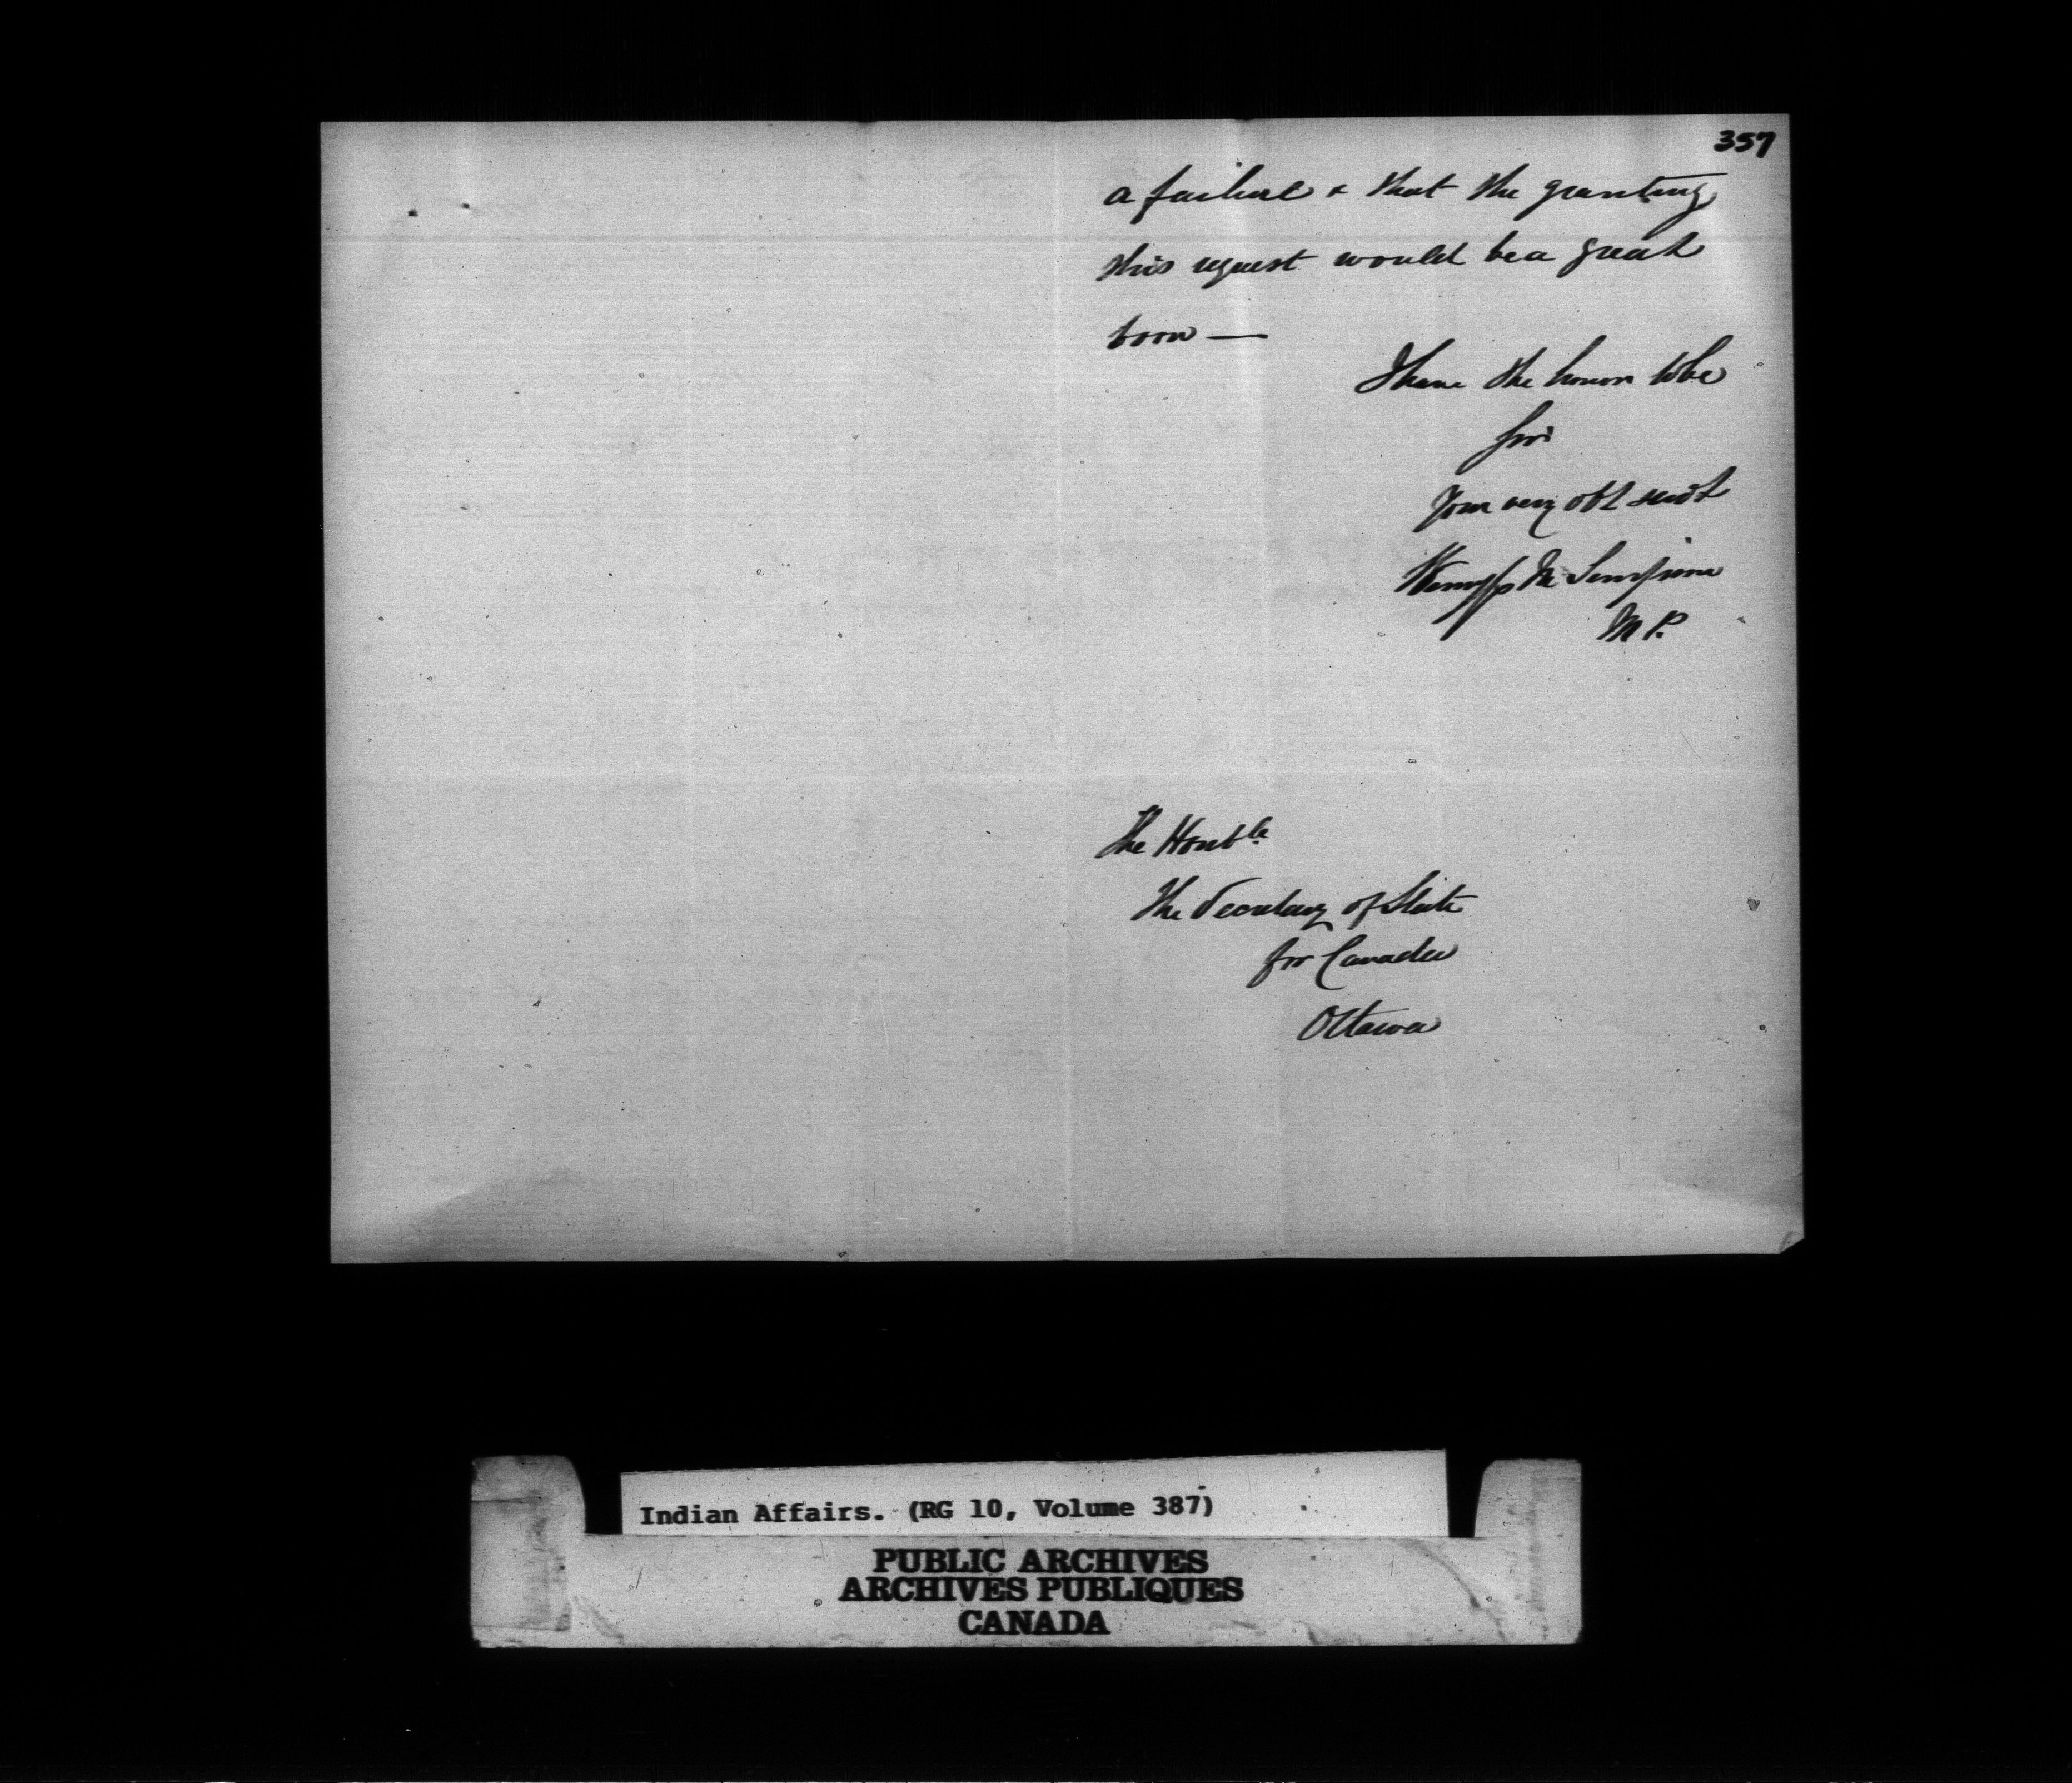 357
a failure & that the granting
this request would be a great
boon —
I have the honor to be
Sir
Your very obt servt
Wemyss M Simpson
M P.
The Honble
The Secretary of State
for Canada
Ottawa
Indian Affairs. (RG 10, Volume 387)
PUBLIC ARCHIVES
ARCHIVES PUBLIQUES
CANADA